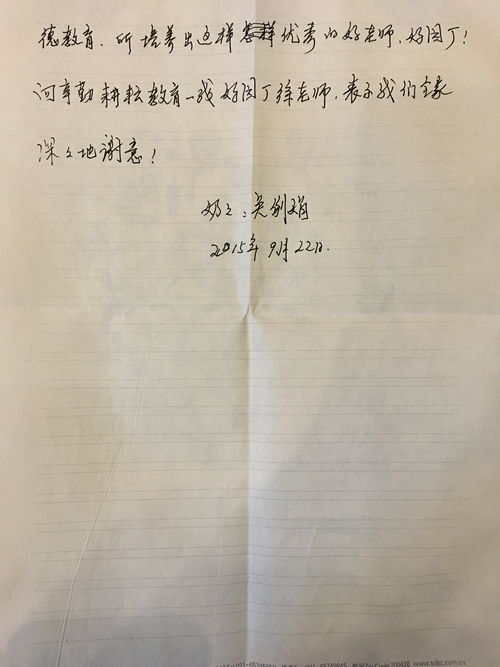 德教育.所培养出这样优秀的好老师.好园丁!
向辛勤耕耘教育一线好园丁徐老师.表示我们全家
深々地谢意!
奶々:
2015年9月22日.
200438 www.sdec.com.cn